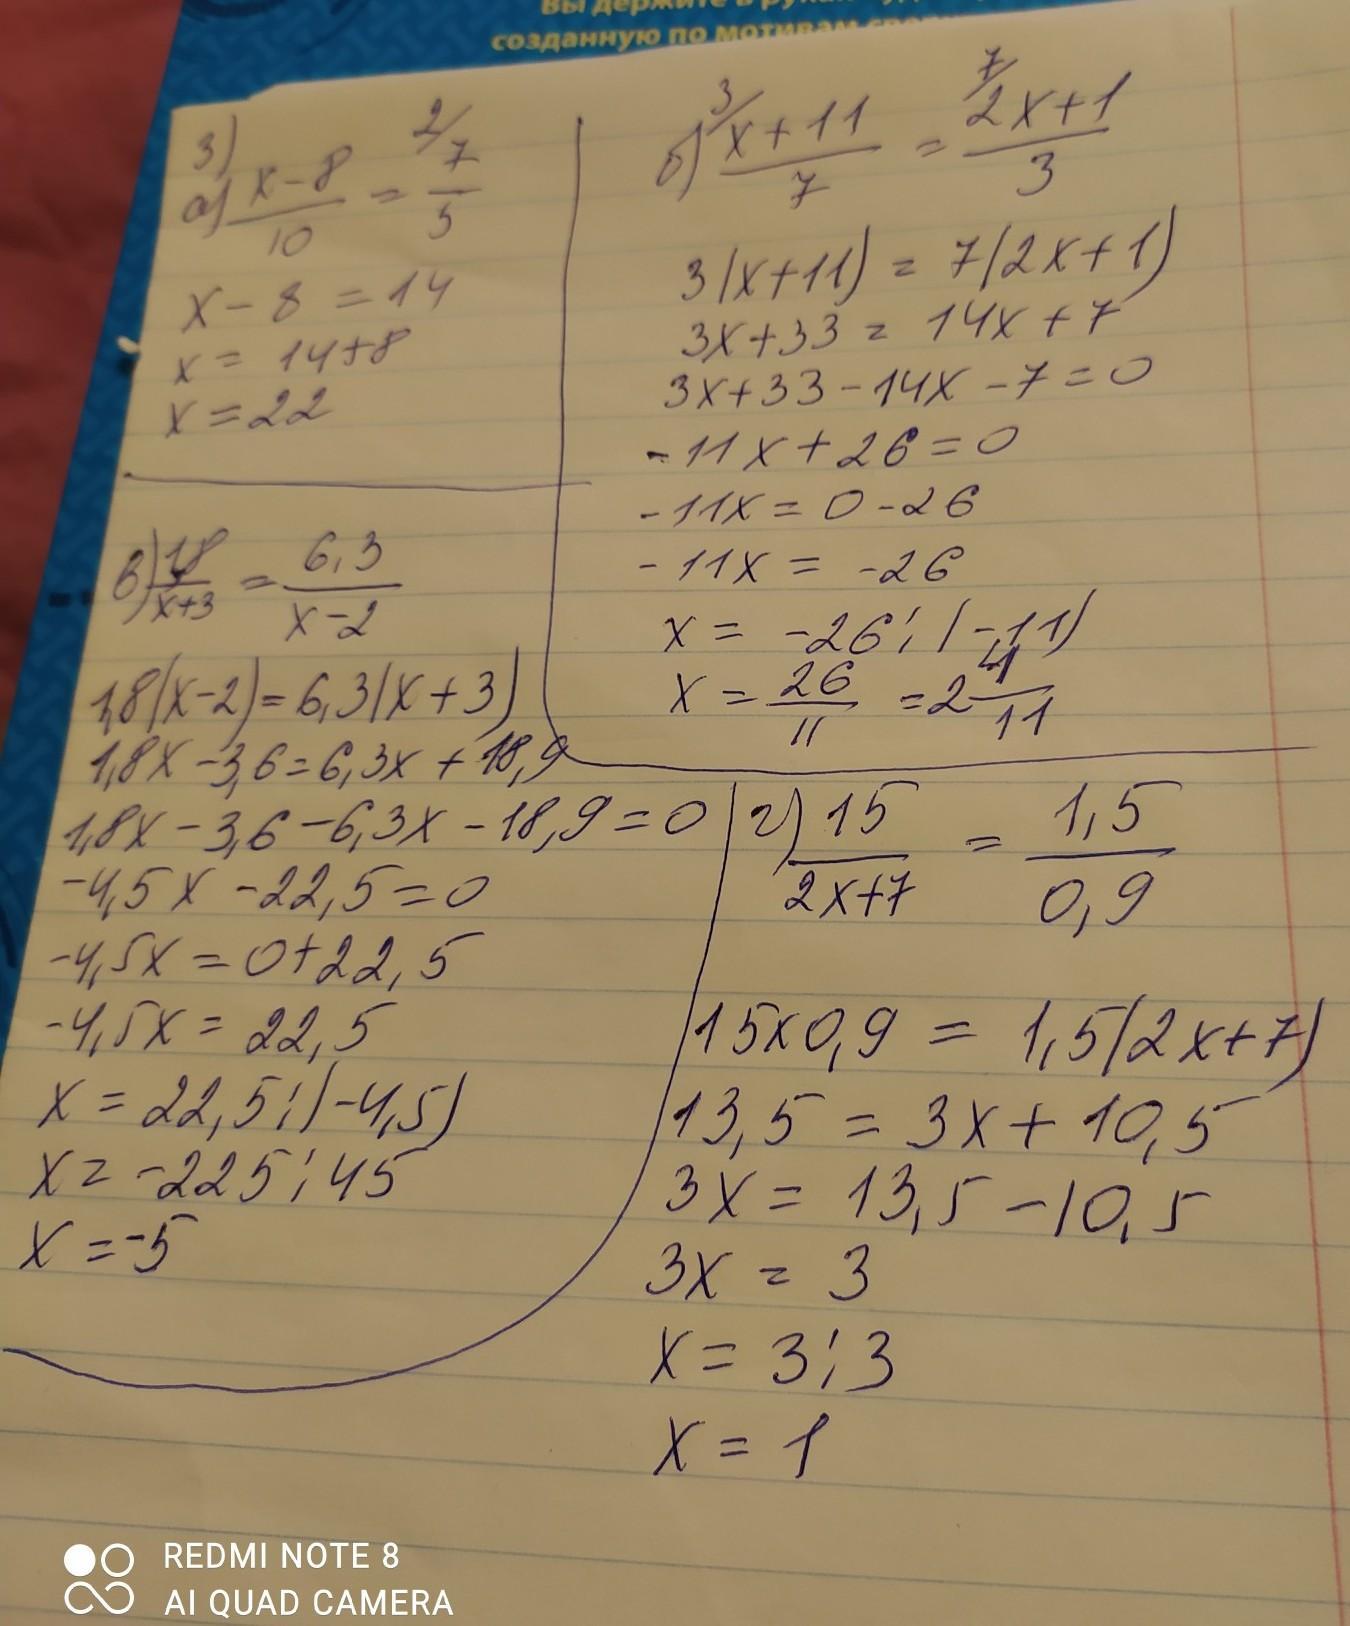 Вы держите в руках
созданную по мотивам
3)
а) x-8/10 = 2/ 7/5
x-8=14
x=14+8
x=22
б) 3/ x+11/7 = 7/ 2x+1/3
3(x+11)=7(2x+1)
3x+33=14x+7
3x+33-14x-7=0
-11x+26=0
-11x=0-26
-11x=-26
x=-26:(-11)
x=26/11=2 4/11
в) 1,8/x+3 = 6,3/x-2
1,8(x-2)=6,3(x+3)
1,8x-3,6=6,3x+18,9
1,8x-3,6-6,3x-18,9=0
-4,5x-22,5=0
-4,5x=0+22,5
-4,5x=22,5
x=22,5:(-4,5)
x=-225:45
x=-5
г) 15/2x+7 = 1,5/0,9
15x0,9=1,5(2x+7)
13,5=3x+10,5
3x=13,5-10,5
3x=3
x=3:3
x=1
REDMI NOTE 8
AI QUAD CAMERA